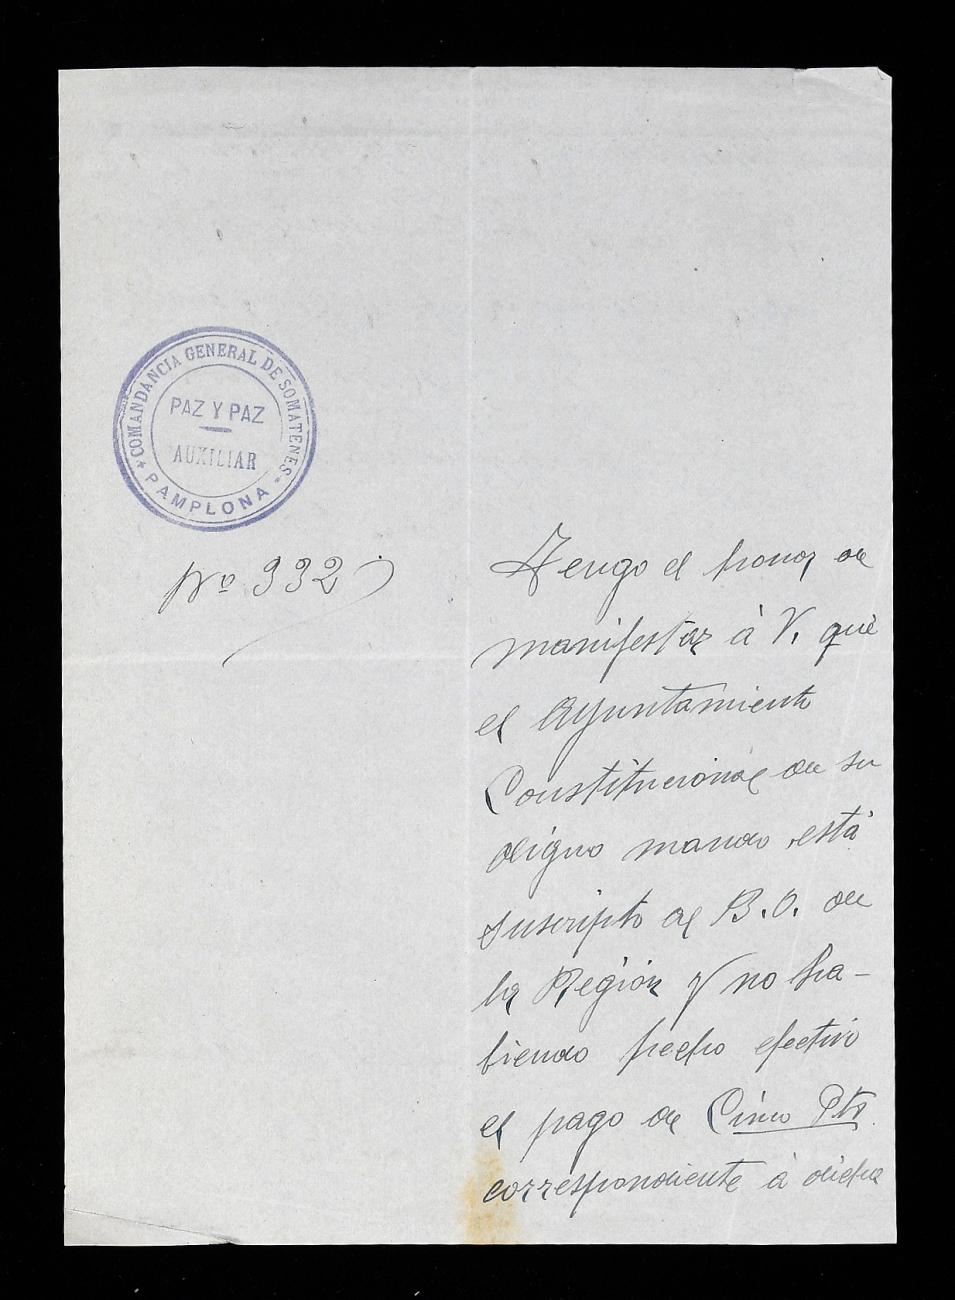 COMANDANCIA GENERAL DE SOMATENES
PAZ Y PAZ
AUXILIAR
PAMPLONA
Nº 332
Tengo el honor de
manifestar á V. qué
el Ayuntamiento
Constitucional de su
digno mando está
suscripto al B.O. de
la Región y no ha-
biendo hecho efectivo
el pago de Cinco Pts.
correspondiente á dicha